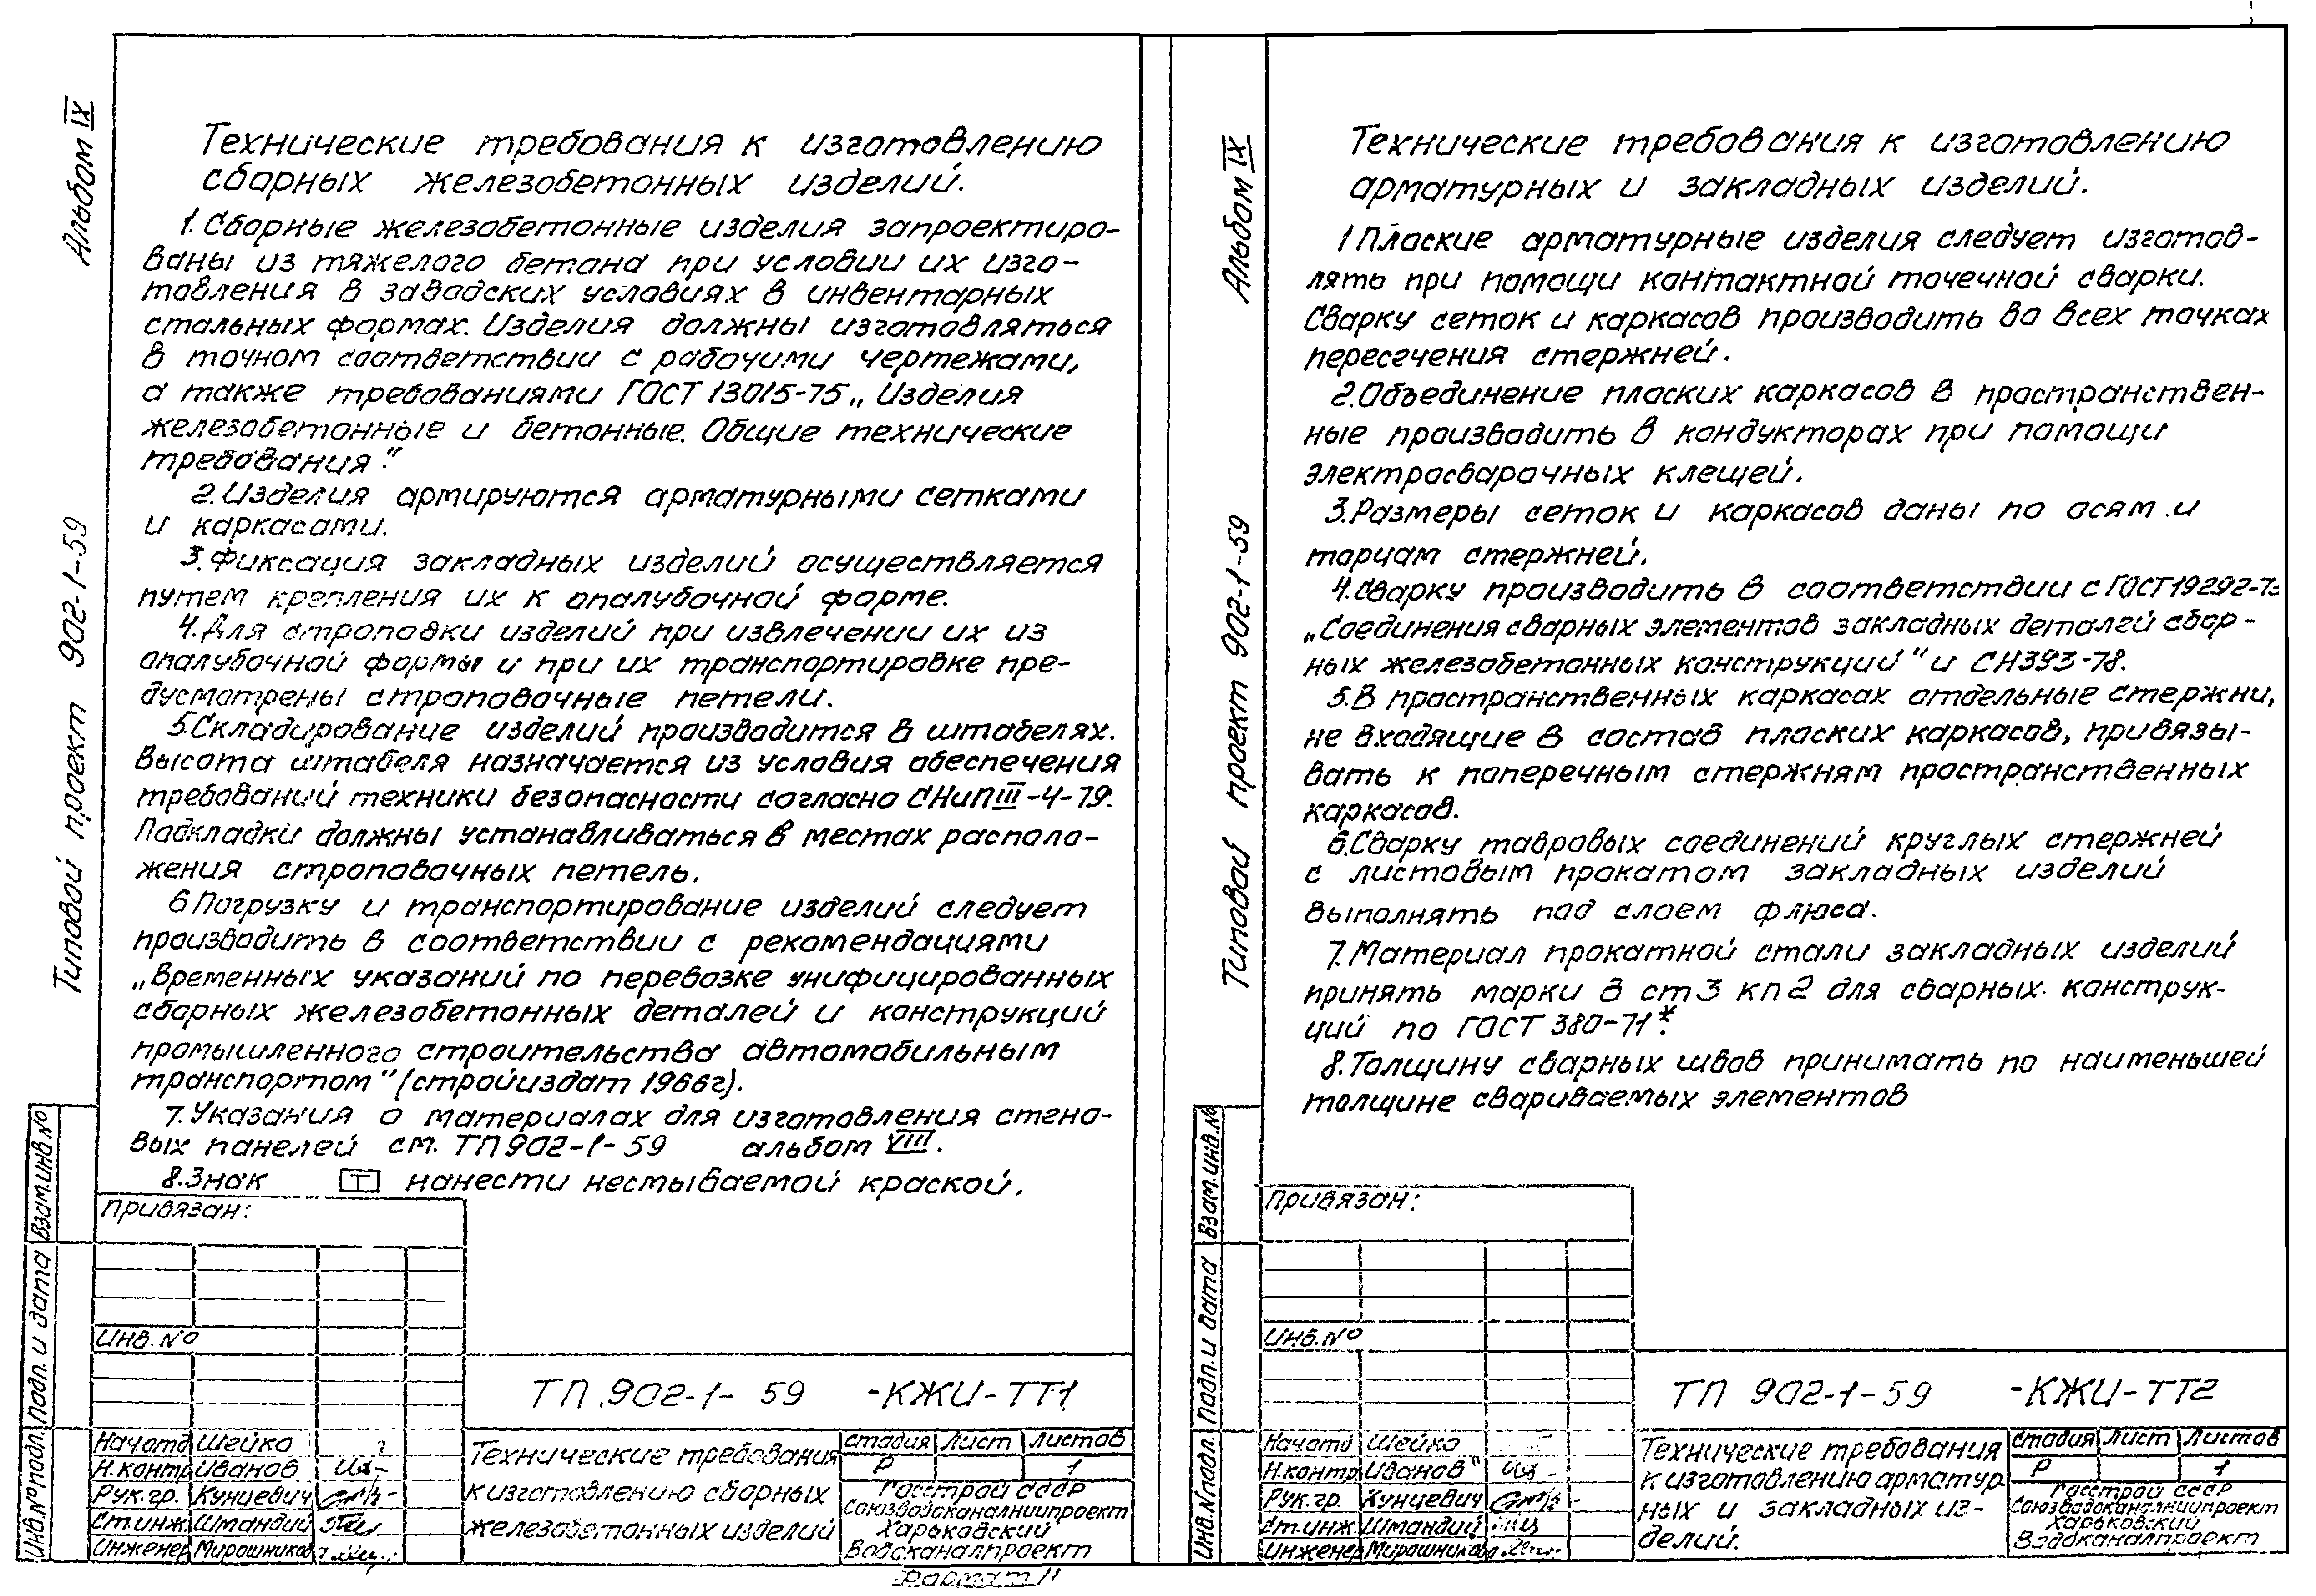 Альбом IX
Типовой проект 902-1-59
Технические требования к изготовлению
сборных железобетонных изделий.
1. Сборные железобетонные изделия запроектиро-
ваны из тяжелого бетона при условии их изго-
товления в заводских условиях в инвентарных
стальных формах. Изделия должны изготовляться
в точном соответствии с рабочими чертежами,
а также требованиями ГОСТ 13015-75 „Изделия
железобетонные и бетонные. Общие технические
требования".
2. Изделия армируются арматурными сетками
и каркасами.
3. Фиксация закладных изделий осуществляется
путем крепления их к опалубочной форме.
4. Для строповки изделий при извлечении их из
опалубочной формы и при их транспортировке пре-
дусмотрены строповочные петели.
5. Складирование изделий производится в штабелях.
Высота штабеля назначается из условия обеспечения
требований техники безопасности согласно СНиП III-4-79.
Подкладки должны устанавливаться в местах располо-
жения строповочных петель.
6 Погрузку и транспортирование изделий следует
производить в соответствии с рекомендациями
„Временных указаний по перевозке унифицированных
сборных железобетонных деталей и конструкций
промышленного строительства автомобильным
транспортом" (стройиздат 1966г).
7. Указания о материалах для изготовления стено-
вых панелей см. ТП 902-1-59 альбом VIII.
8. Знак Т нанести несмываемой краской.
Привязан:
Инв. №
ТП 902-1-59 -КЖИ-ТТ1
Нач отд Шейко
Н.контр Иванов
Рук.гр. Кунцевич
Ст.инж. Шмандий
Инженер Мирошникова
Технические требования
к изготовлению сборных
железобетонных изделий
стадия Лист Листов
Р 1
Госстрой СССР
Союзводоканалниипроект
Харьковский
Водоканалпроект
Формат 11
Взам.инв №
Подп. и дата
Инв.№ подл.
Альбом IX
Типовой проект 902-1-59
Технические требования к изготовлению
арматурных и закладных изделий.
1 Плоские арматурные изделия следует изготов-
лять при помощи контактной точечной сварки.
Сварку сеток и каркасов производить во всех точках
пересечения стержней.
2. Объединение плоских каркасов в пространствен-
ные производить в кондукторах при помощи
электросварочных клещей.
3. Размеры сеток и каркасов даны по осям и
торцам стержней.
4. Сварку производить в соответствии с ГОСТ 19292-73
„Соединения сварных элементов закладных деталей сбор-
ных железобетонных конструкций" и СН393-78.
5. В пространственных каркасах отдельные стержни,
не входящие в состав плоских каркасов, привязы-
вать к поперечным стержням пространственных
каркасов.
6. Сварку тавровых соединений круглых стержней
с листовым прокатом закладных изделий
выполнять под слоем флюса.
7. Материал прокатной стали закладных изделий
принять марки В ст 3 кп 2 для сварных конструк-
ций по ГОСТ 380-71*.
8. Толщину сварных швов принимать по наименьшей
толщине свариваемых элементов
Привязан:
Инв. №
ТП 902-1-59 -КЖИ-ТТ2
Нач отд Шейко
Н.контр. Иванов
Рук.гр. Кунцевич
Ст.инж. Шмандий
Инженер Мирошникова
Технические требования
к изготовлению арматур-
ных и закладных из-
делий.
стадия Лист Листов
Р 1
Госстрой СССР
Союзводоканалниипроект
Харьковский
Водоканалпроект
Взам.инв.№
Подп. и дата
Инв.№ подл.